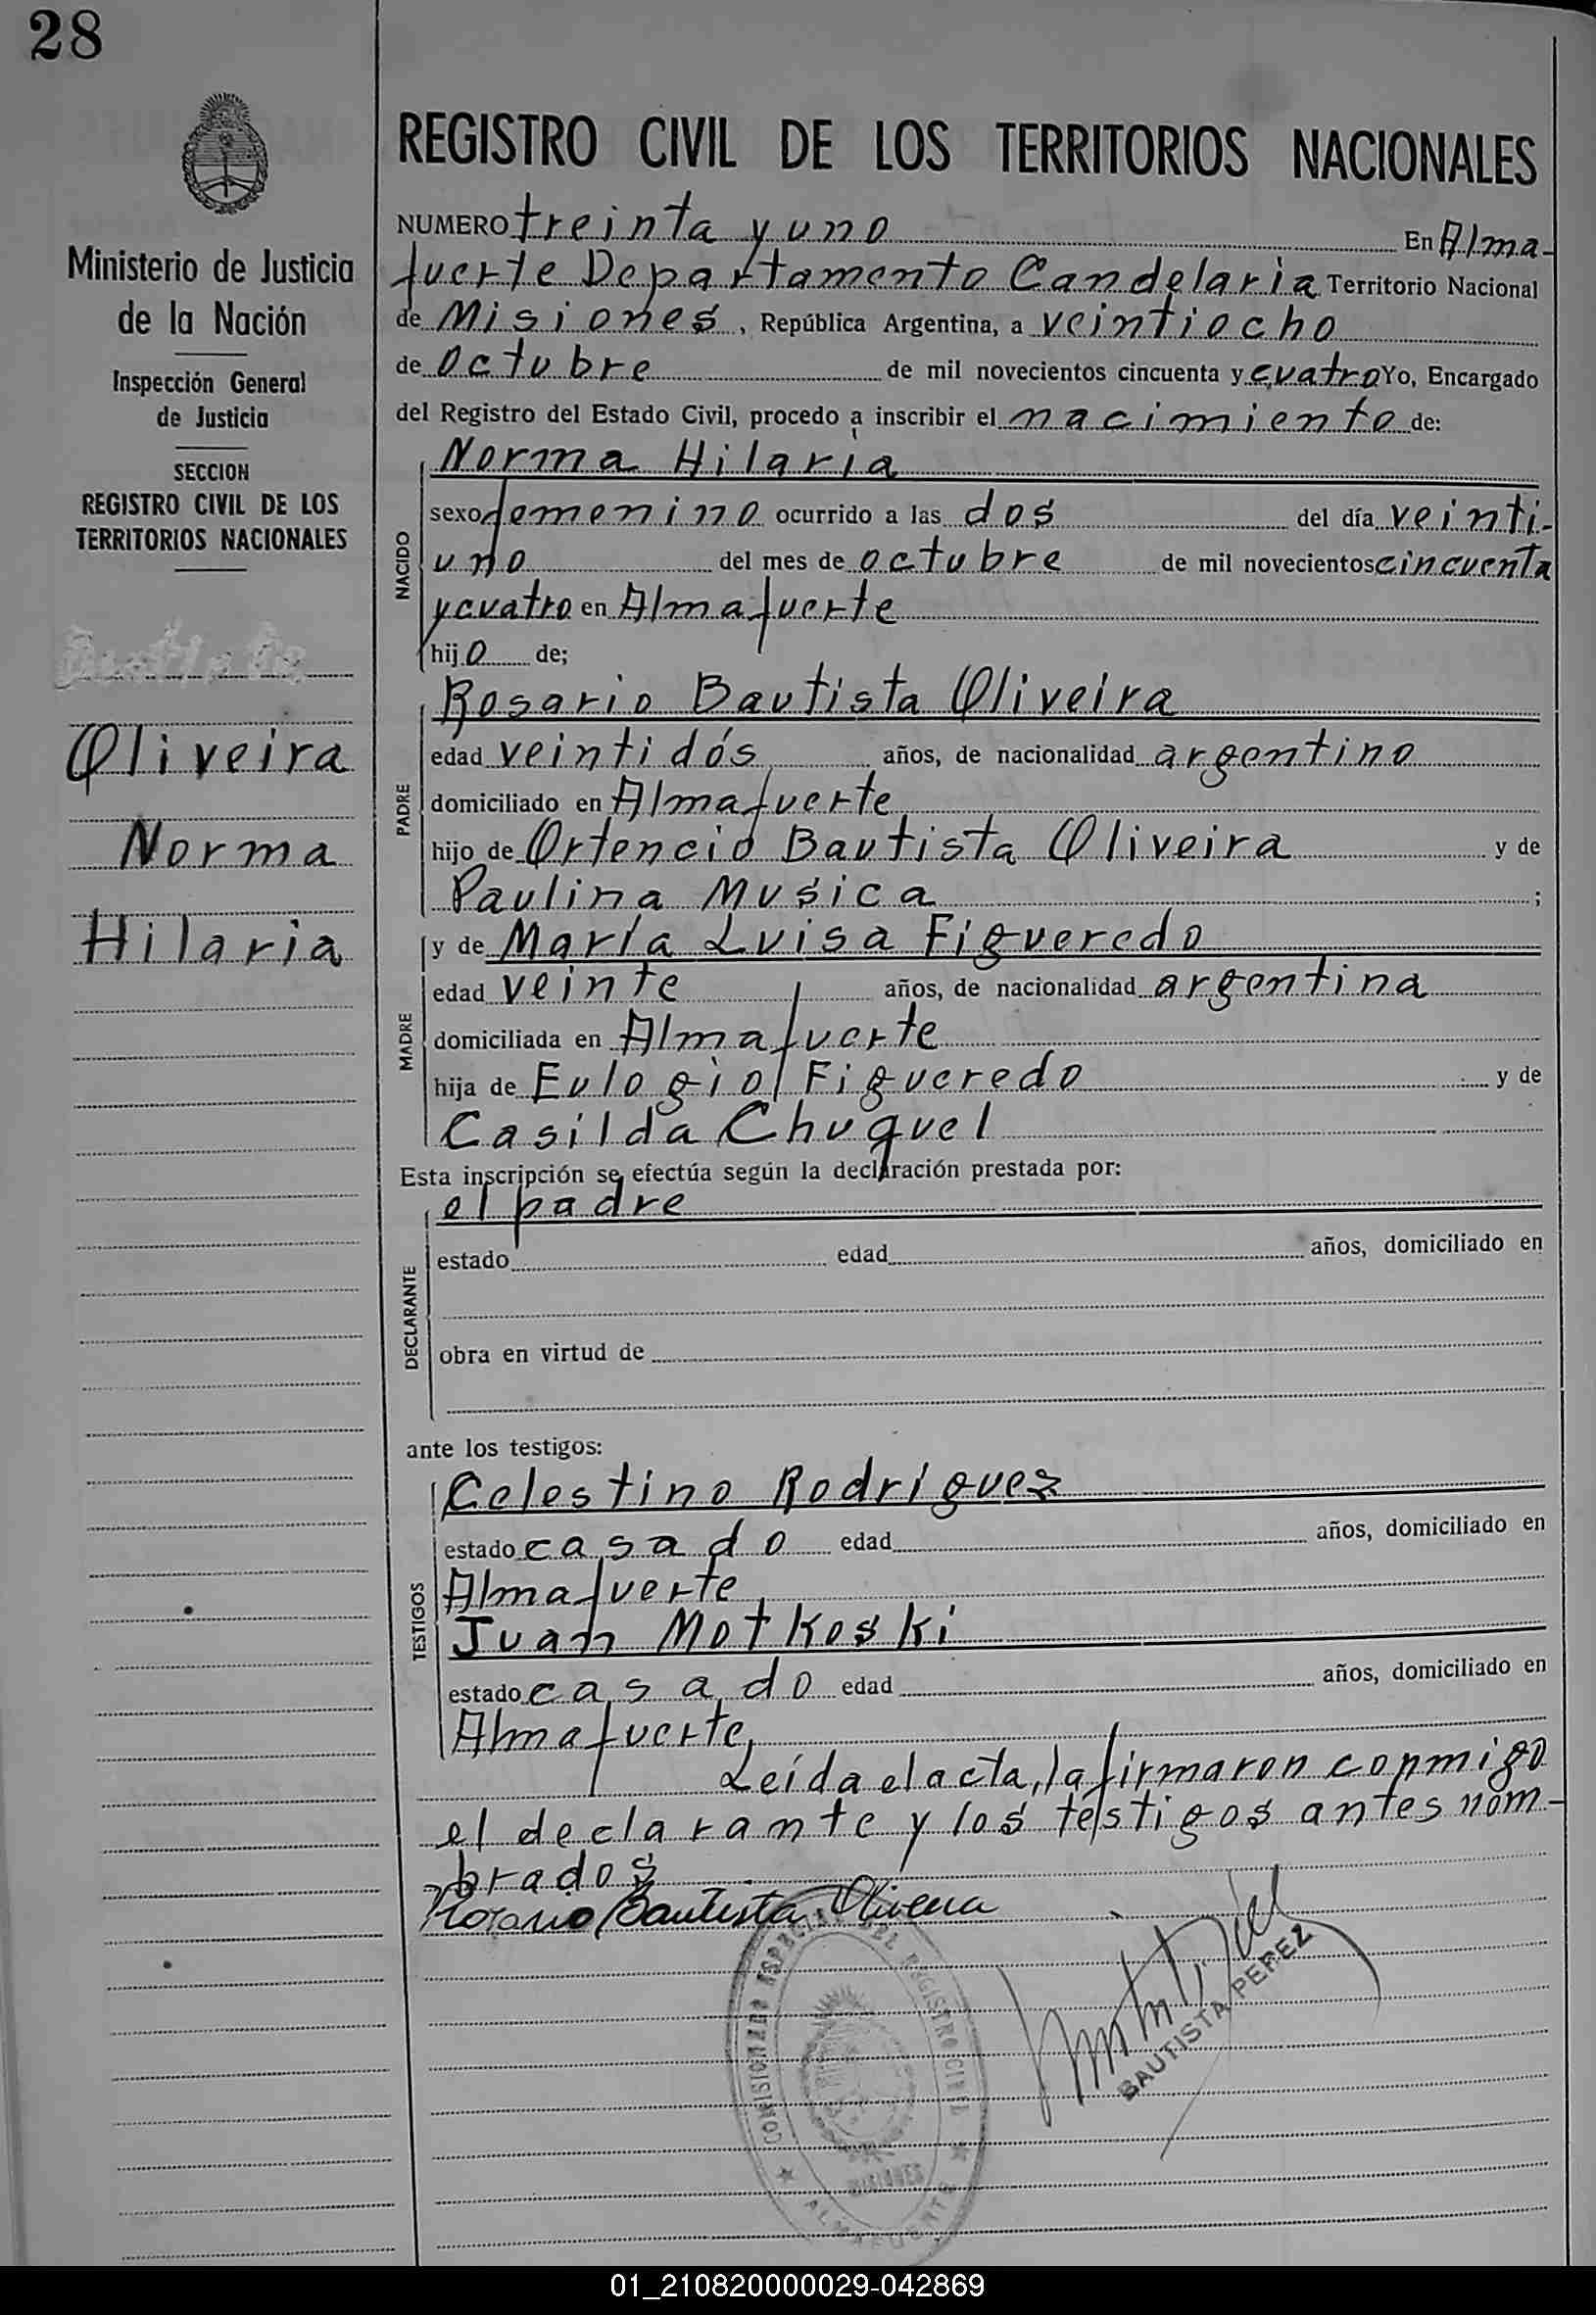 28
REGISTRO CIVIL DE LOS TERRITORIOS NACIONALES
Ministerio de Justicia
de la Nación
Inspección General
de Justicia
SECCION
REGISTRO CIVIL DE LOS
TERRITORIOS NACIONALES
Oliveira
Norma
Hilaria
NUMERO treinta y uno En Alma-
fuerte Departamento Candelaria Territorio Nacional
de Misiones, República Argentina, a veintiocho
de octubre de mil novecientos cincuenta y cuatro Yo, Encargado
del Registro del Estado Civil, procedo a inscribir el nacimiento de:
Norma Hilaria
NACIDO
sexo femenino ocurrido a las dos del día veinti-
uno del mes de octubre de mil novecientos cincuenta
y cuatro en Almafuerte
hijo de;
Rosario Bautista Oliveira
PADRE
edad veintidós años, de nacionalidad argentino
domiciliado en Almafuerte
hijo de Ortencio Bautista Oliveira y de
Paulina Musica ;
y de María Luisa Figueredo
MADRE
edad veinte años, de nacionalidad argentina
domiciliada en Almafuerte
hija de Eulogio Figueredo y de
Casilda Chuquel
Esta inscripción se efectúa según la declaración prestada por:
el padre
DECLARANTE
estado edad años, domiciliado en
obra en virtud de
ante los testigos:
Celestino Rodríguez
TESTIGOS
estado casado edad años, domiciliado en
Almafuerte
Juan Motkoski
estado casado edad años, domiciliado en
Almafuerte,
Leída el acta, la firmaron conmigo
el declarante y los testigos antes nom-
brados
Rosario Bautista Oliveira
COMISIONADO ESPECIAL DEL REGISTRO CIVIL
MISIONES
ALMAFUERTE
BAUTISTA PEREZ
01_210820000029-042869